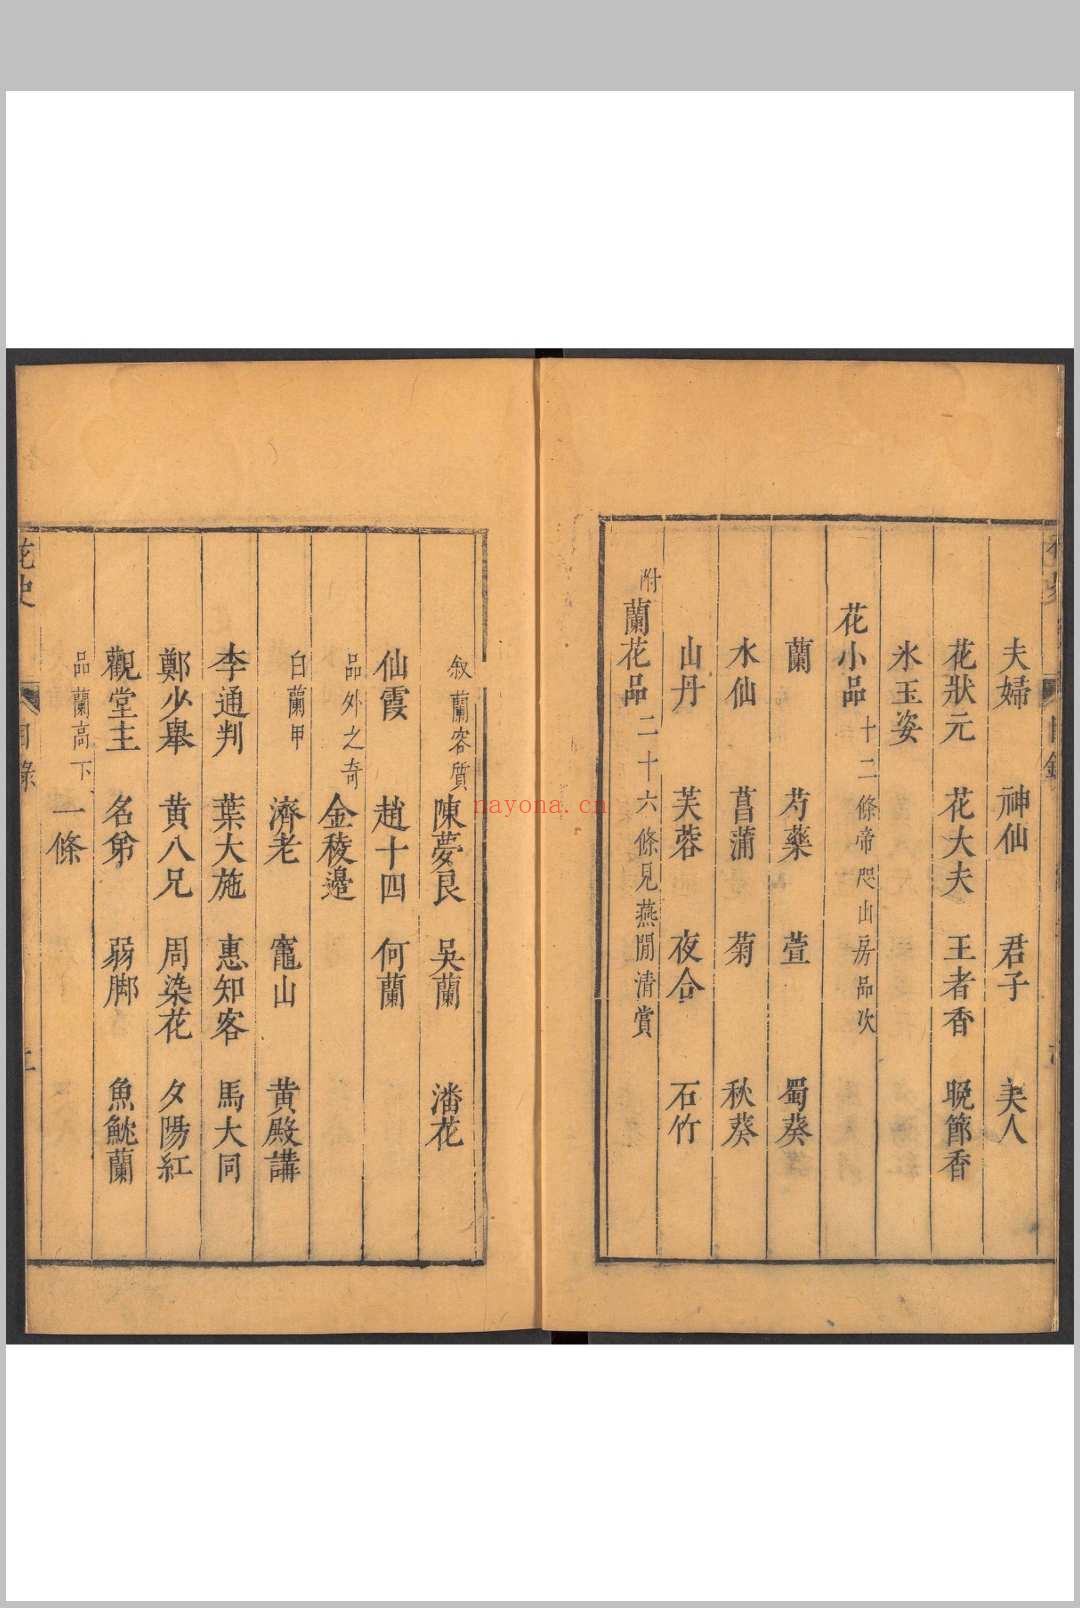 夫婦　神仙　君子　美人
花狀元　花大夫　王者香　晚節香
氷玉姿
花小品　十二條帝咫山房品次
蘭　芍藥　萱　蜀葵
水仙　菖蒲　菊　秋葵
山丹　芙蓉　夜合　石竹
附蘭花品　二十六條見燕閒清賞
叙蘭容質　陳夢良　吳蘭　潘花
仙霞　趙十四　何蘭
品外之奇　金稜邊
白蘭甲　濟老　竈山　黃殿講
李通判　葉大施　惠知客　馬大同
鄭少舉　黃八兄　周染花　夕陽紅
觀堂主　名第　弱脚　魚魫蘭
品蘭高下　一條
花史
目錄
nayona.cn